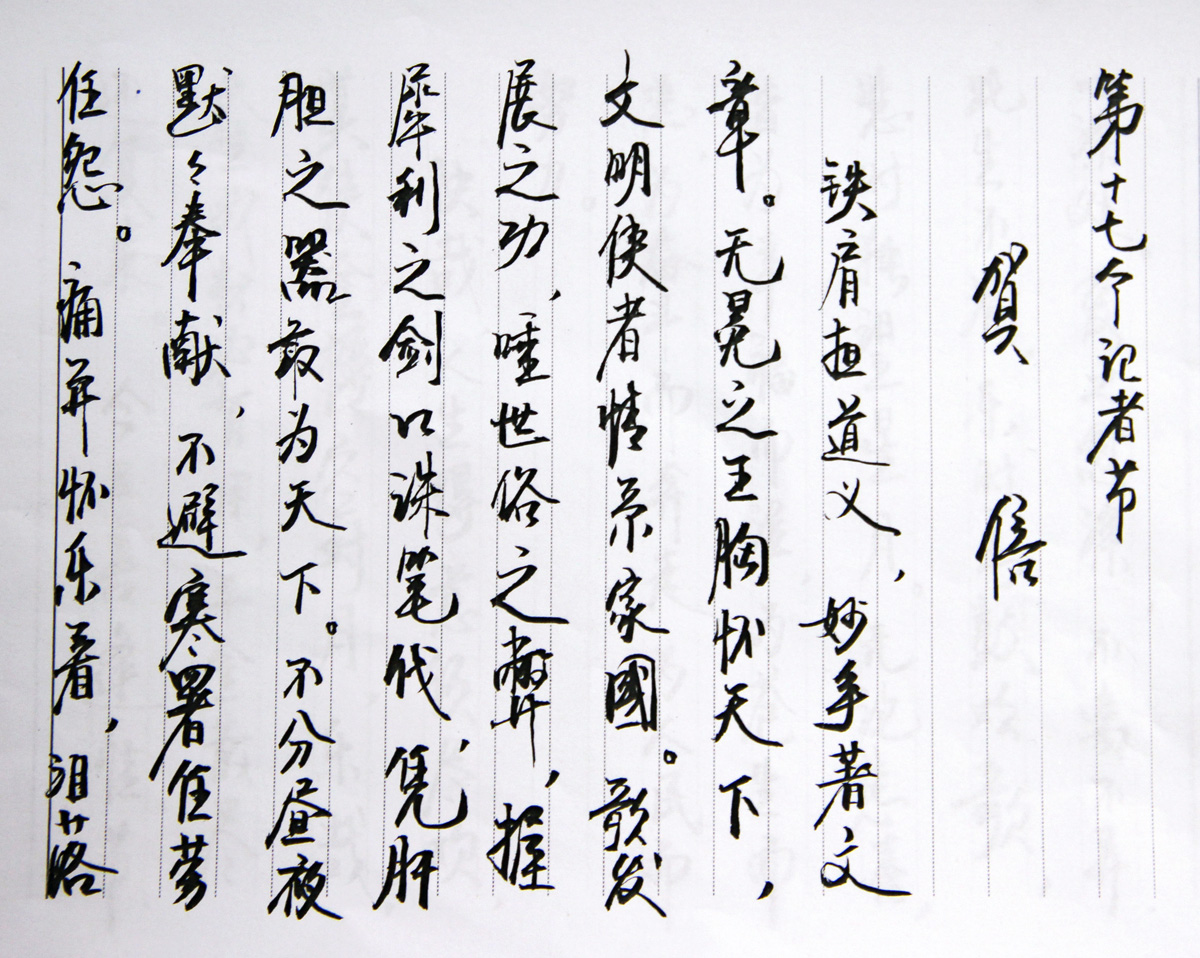 第十七个记者节
贺信
铁肩担道义，妙手著文
章。无冕之王胸怀天下，
文明使者情系家國。歌发
展之功，唾世俗之弊，握
犀利之剑口诛笔伐，凭肝
胆之器最为天下。不分昼夜
默々奉献，不避寒署任劳
任怨。痛并怀乐着，泪落